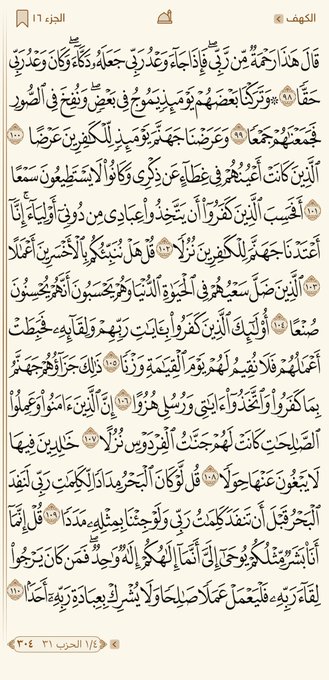 الكهف
الجزء ١٦
قَالَ هَٰذَا رَحْمَةٌ مِّن رَّبِّي ۖ فَإِذَا جَاءَ وَعْدُ رَبِّي جَعَلَهُ دَكَّاءَ ۖ وَكَانَ وَعْدُ رَبِّي
حَقًّا ٩٨ ۞ وَتَرَكْنَا بَعْضَهُمْ يَوْمَئِذٍ يَمُوجُ فِي بَعْضٍ ۖ وَنُفِخَ فِي الصُّورِ
فَجَمَعْنَاهُمْ جَمْعًا ٩٩ وَعَرَضْنَا جَهَنَّمَ يَوْمَئِذٍ لِّلْكَافِرِينَ عَرْضًا ١٠٠
الَّذِينَ كَانَتْ أَعْيُنُهُمْ فِي غِطَاءٍ عَن ذِكْرِي وَكَانُوا لَا يَسْتَطِيعُونَ سَمْعًا
١٠١ أَفَحَسِبَ الَّذِينَ كَفَرُوا أَن يَتَّخِذُوا عِبَادِي مِن دُونِي أَوْلِيَاءَ ۚ إِنَّا
أَعْتَدْنَا جَهَنَّمَ لِلْكَافِرِينَ نُزُلًا ١٠٢ قُلْ هَلْ نُنَبِّئُكُم بِالْأَخْسَرِينَ أَعْمَالًا
١٠٣ الَّذِينَ ضَلَّ سَعْيُهُمْ فِي الْحَيَاةِ الدُّنْيَا وَهُمْ يَحْسَبُونَ أَنَّهُمْ يُحْسِنُونَ
صُنْعًا ١٠٤ أُولَٰئِكَ الَّذِينَ كَفَرُوا بِآيَاتِ رَبِّهِمْ وَلِقَائِهِ فَحَبِطَتْ
أَعْمَالُهُمْ فَلَا نُقِيمُ لَهُمْ يَوْمَ الْقِيَامَةِ وَزْنًا ١٠٥ ذَٰلِكَ جَزَاؤُهُمْ جَهَنَّمُ
بِمَا كَفَرُوا وَاتَّخَذُوا آيَاتِي وَرُسُلِي هُزُوًا ١٠٦ إِنَّ الَّذِينَ آمَنُوا وَعَمِلُوا
الصَّالِحَاتِ كَانَتْ لَهُمْ جَنَّاتُ الْفِرْدَوْسِ نُزُلًا ١٠٧ خَالِدِينَ فِيهَا
لَا يَبْغُونَ عَنْهَا حِوَلًا ١٠٨ قُل لَّوْ كَانَ الْبَحْرُ مِدَادًا لِّكَلِمَاتِ رَبِّي لَنَفِدَ
الْبَحْرُ قَبْلَ أَن تَنفَدَ كَلِمَاتُ رَبِّي وَلَوْ جِئْنَا بِمِثْلِهِ مَدَدًا ١٠٩ قُلْ إِنَّمَا
أَنَا بَشَرٌ مِّثْلُكُمْ يُوحَىٰ إِلَيَّ أَنَّمَا إِلَٰهُكُمْ إِلَٰهٌ وَاحِدٌ ۖ فَمَن كَانَ يَرْجُو
لِقَاءَ رَبِّهِ فَلْيَعْمَلْ عَمَلًا صَالِحًا وَلَا يُشْرِكْ بِعِبَادَةِ رَبِّهِ أَحَدًا ١١٠
١/٤ الحزب ٣١
٣٠٤